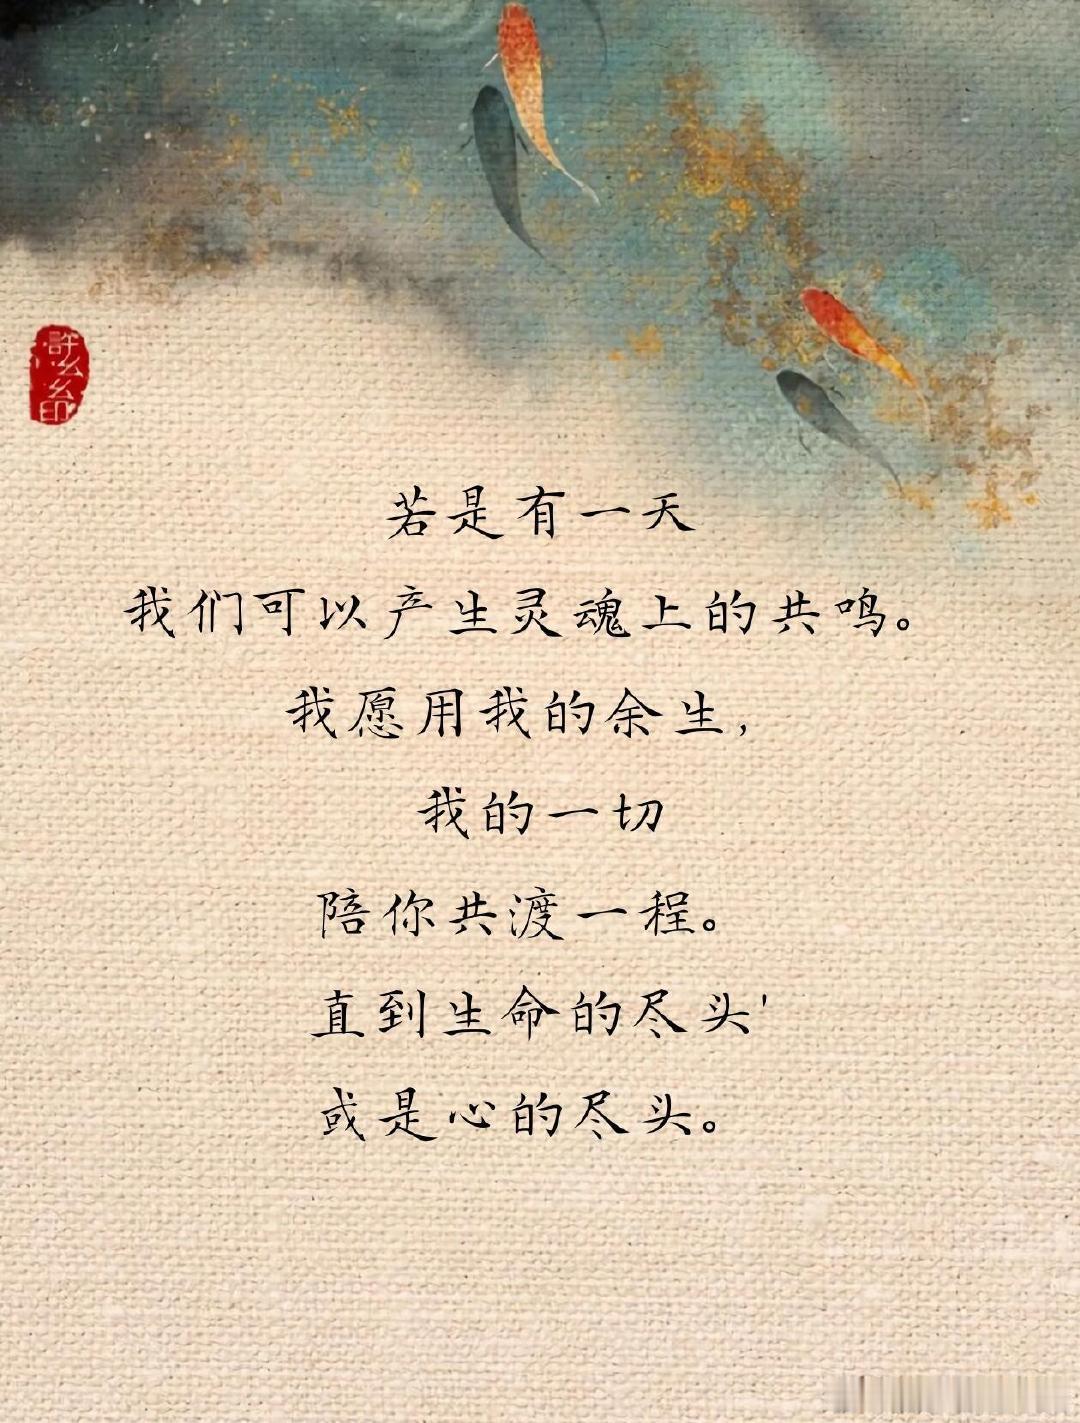 許么么印
若是有一天
我们可以产生灵魂上的共鸣。
我愿用我的余生,
我的一切
陪你共渡一程。
直到生命的尽头'
或是心的尽头。